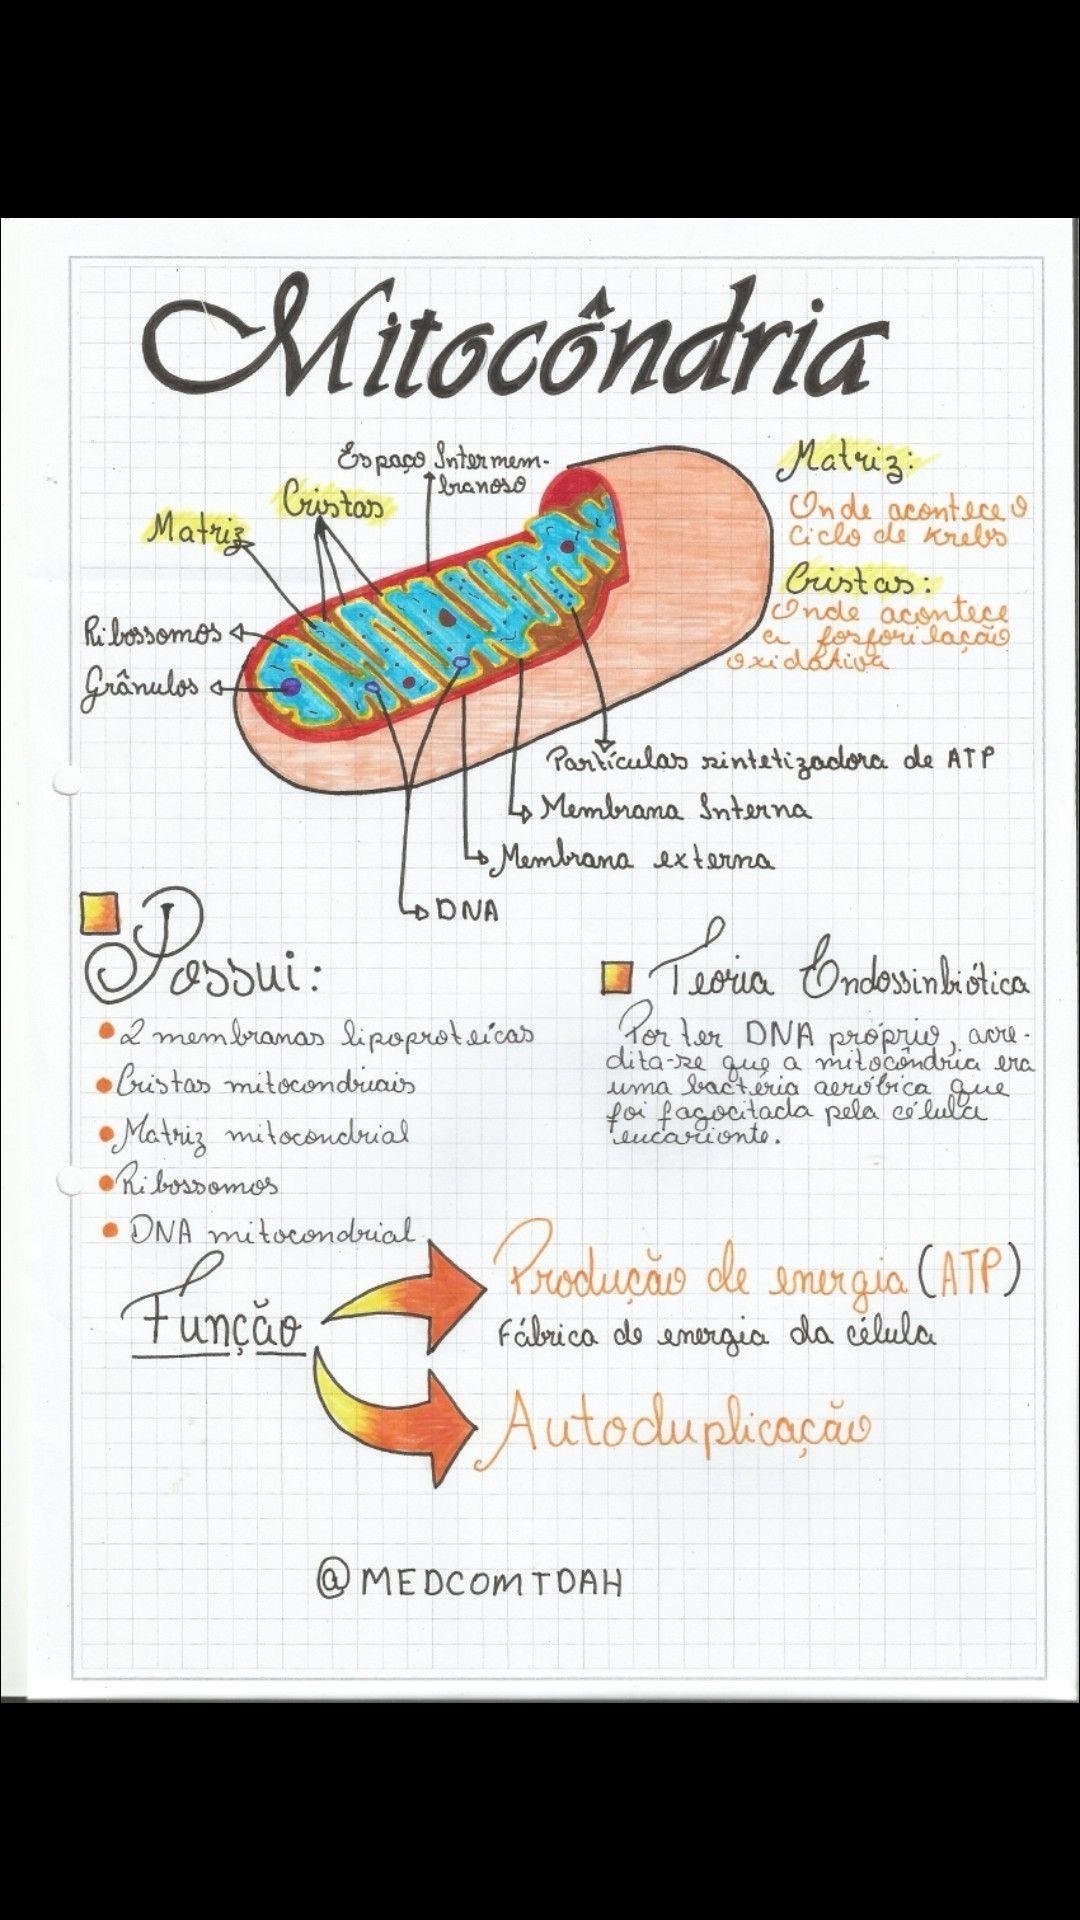 Mitocôndria
Espaço Intermem-
branoso
Cristas
Matriz
Ribossomos
Grânulos
Matriz:
Onde acontece o
ciclo de Krebs
Cristas:
Onde acontece
a fosforilação
oxidativa
Partículas sintetizadora de ATP
Membrana Interna
Membrana externa
DNA
Possui:
2 membranas lipoproteícas
Cristas mitocondriais
Matriz mitocondrial
Ribossomos
DNA mitocondrial
Teoria Endossinbiótica
Por ter DNA próprio, acre-
dita-se que a mitocôndria era
uma bactéria aeróbica que
foi fagocitada pela célula
eucarionte.
Função
Produção de energia (ATP)
Fábrica de energia da célula
Autoduplicação
@MEDCOMTDAH